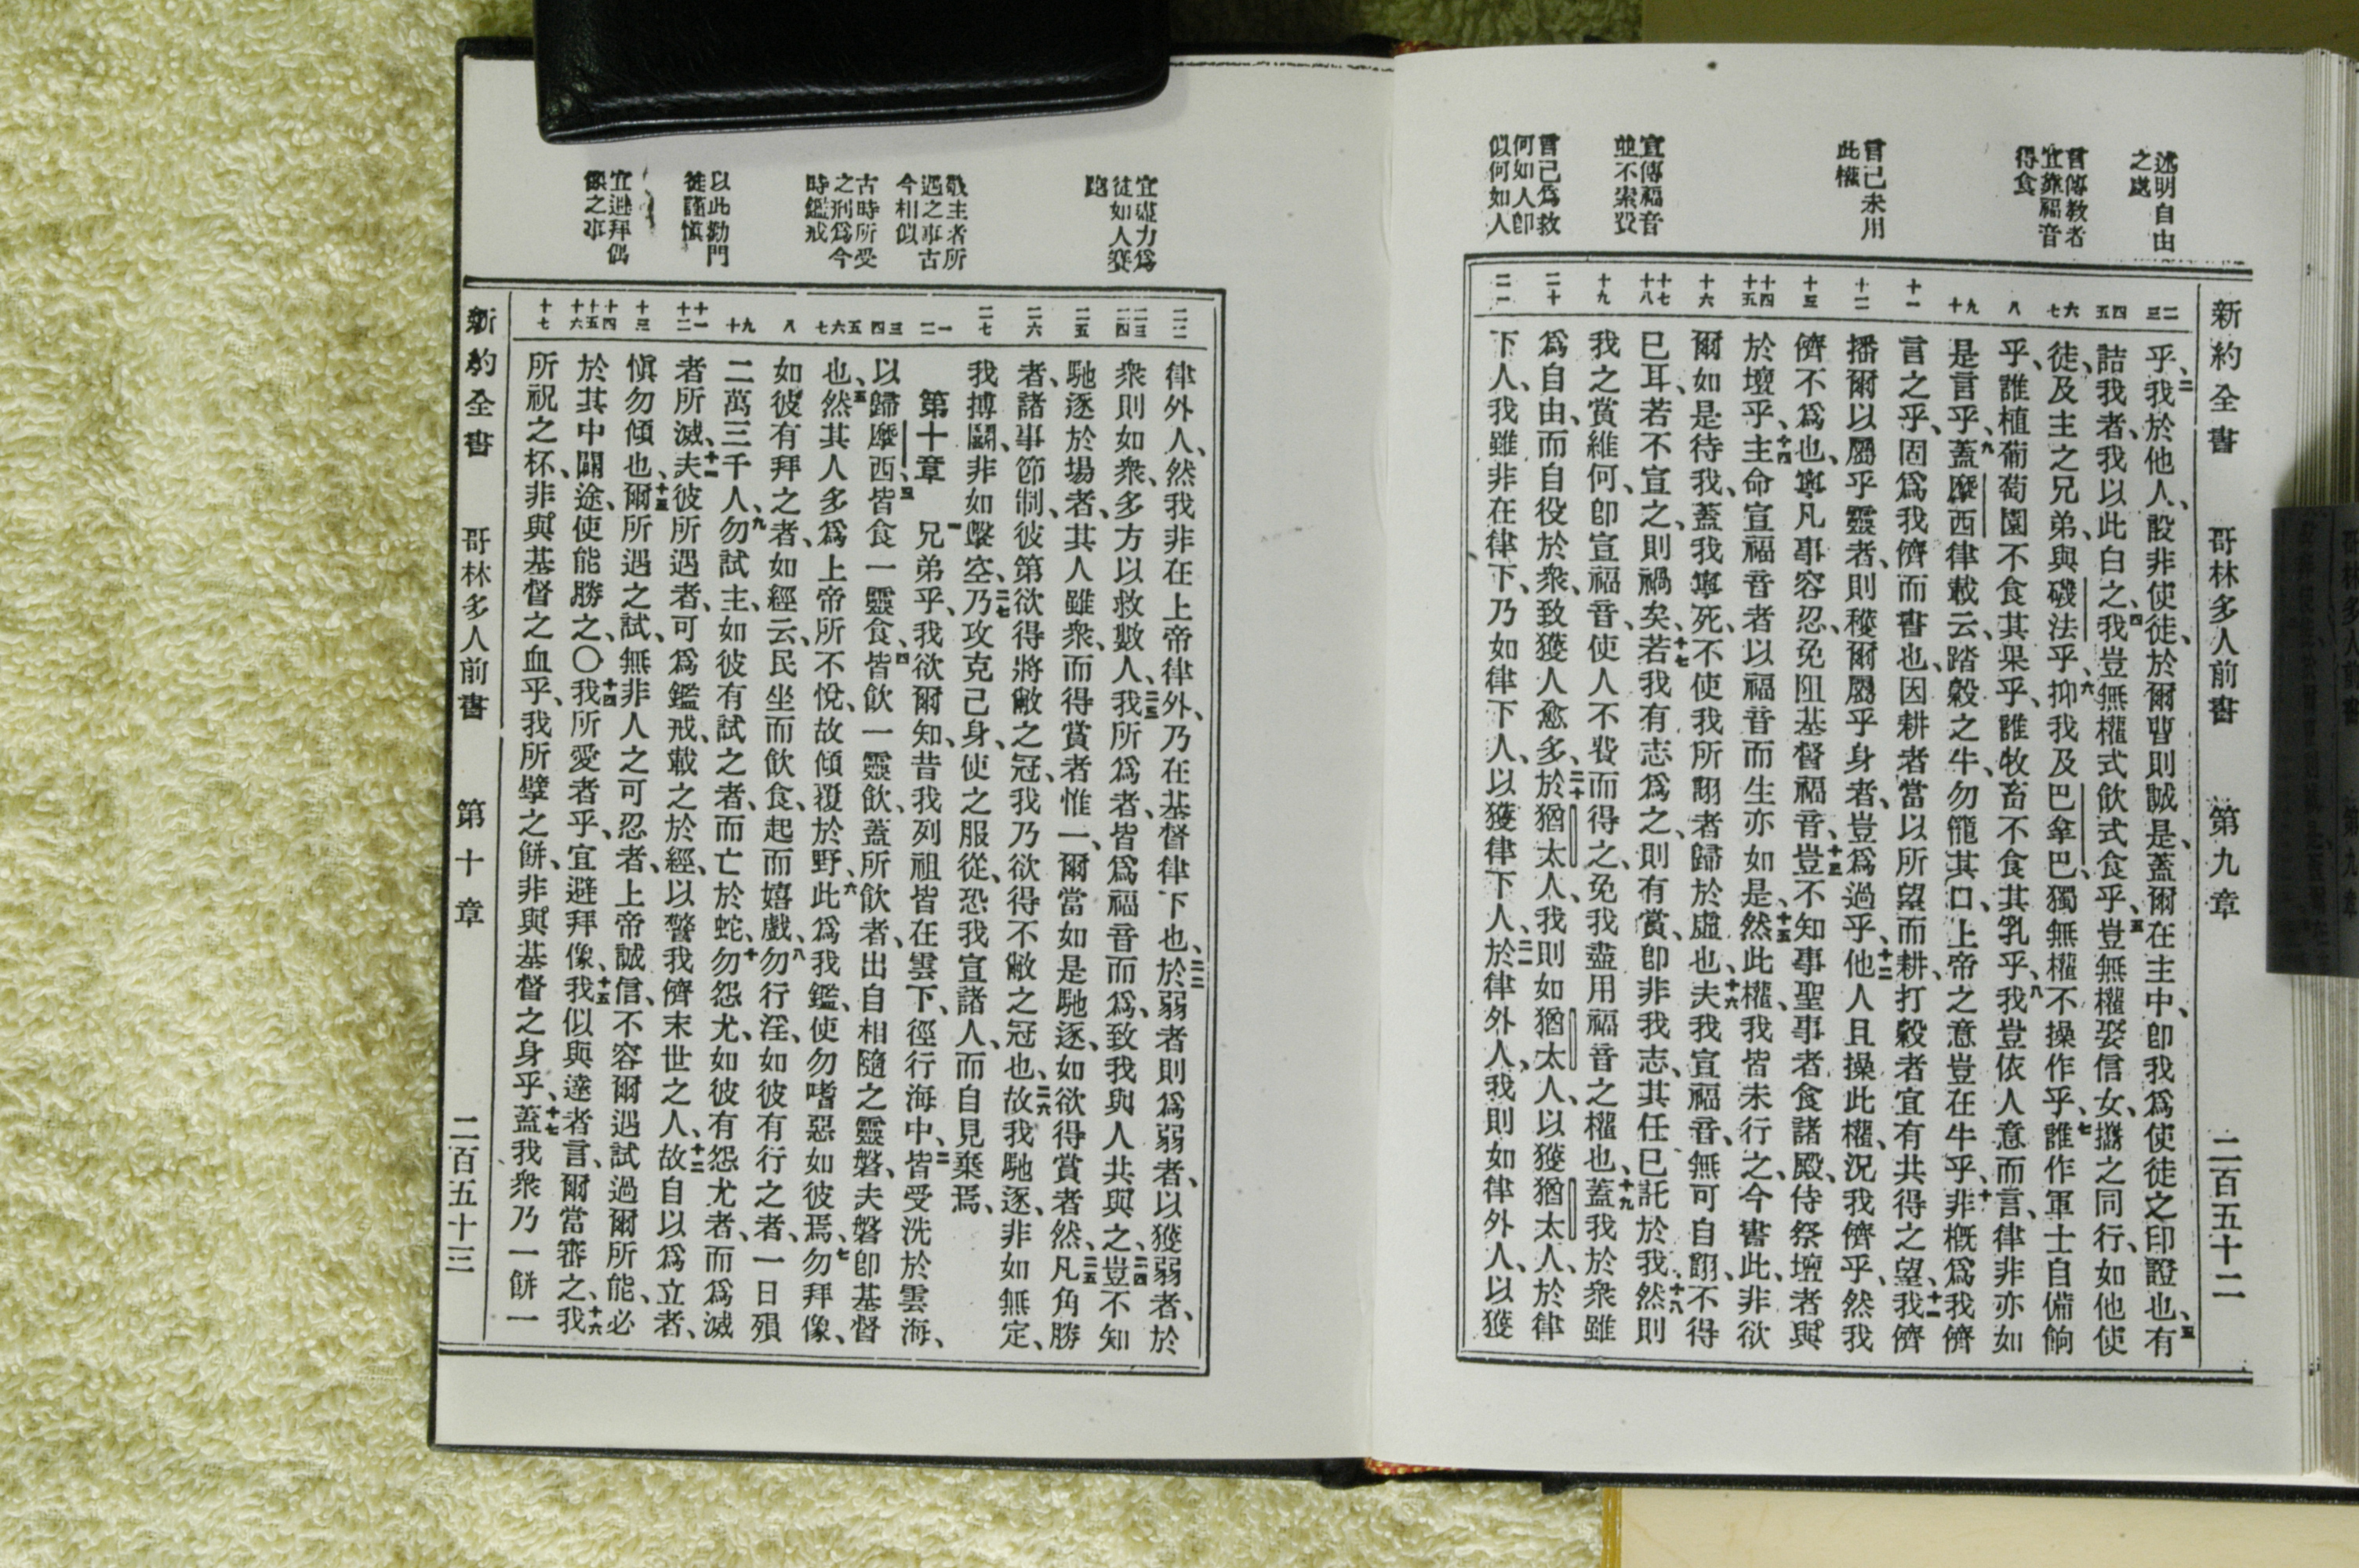 新約全書 哥林多人前書 第九章 二百五十二
述明自由
之處
言傳教者
宜藉福音
得食
言己未用
此權
宣傳福音
並不索費
言己爲救
何如人即
似何如人
二三
四五
六七
八
九十
十一
十二
十三
十四十五
十六
十七十八
十九
二十
二一
乎、二我於他人、設非使徒、於爾曹則誠是、蓋爾在主中、卽我爲使徒之印證也、三有
詰我者、我以此白之、四我豈無權式飲式食乎、五豈無權娶信女、攜之同行、如他使
徒、及主之兄弟、與磯法乎、六抑我及巴拿巴、獨無權不操作乎、七誰作軍士自備餉
乎、誰植葡萄園不食其果乎、誰牧畜不食其乳乎、八我豈依人意而言、律非亦如
是言乎、九蓋摩西律載云、踏穀之牛、勿籠其口、上帝之意豈在牛乎、十非概爲我儕
言之乎、固爲我儕而書也、因耕者當以所望而耕、打穀者宜有共得之望、十一我儕
播爾以屬乎靈者、則穫爾屬乎身者、豈爲過乎、十二他人且操此權、況我儕乎、然我
儕不爲也、寧凡事容忍、免阻基督福音、十三豈不知事聖事者食諸殿、侍祭壇者與
於壇乎、十四主命宣福音者以福音而生亦如是、十五然此權、我皆未行之、今書此、非欲
爾如是待我、蓋我寧死、不使我所詡者歸於虛也、十六夫我宣福音、無可自詡、不得
已耳、若不宣之、則禍矣、十七若我有志爲之、則有賞、卽非我志、其任已託於我、十八然則
我之賞維何、卽宣福音、使人不費而得之、免我盡用福音之權也、十九蓋我於衆雖
爲自由、而自役於衆、致獲人愈多、二十於猶太人、我則如猶太人、以獲猶太人、於律
下人、我雖非在律下、乃如律下人、以獲律下人、二一於律外人、我則如律外人、以獲
宜盡力爲
徒如人賽
跑
敬主者所
遇之事古
今相似
古時所受
之刑爲今
時鑑戒
以此勸門
徒謹愼
宜避拜偶
像之事
二二
二三二四
二五
二六
二七
一二
三四
五六七
八
九十
十一十二
十三
十四十五十六
十七
律外人、然我非在上帝律外、乃在基督律下也、二二於弱者則爲弱者、以獲弱者、於
衆則如衆、多方以救數人、二三我所爲者、皆爲福音而爲、致我與人共與之、二四豈不知
馳逐於場者、其人雖衆、而得賞者惟一、爾當如是馳逐、如欲得賞者然、二五凡角勝
者、諸事節制、彼第欲得將敝之冠、我乃欲得不敝之冠也、二六故我馳逐、非如無定、
我搏鬭、非如擊空、二七乃攻克己身、使之服從、恐我宣諸人、而自見棄焉、
第十章 一兄弟乎、我欲爾知、昔我列祖皆在雲下、徑行海中、二皆受洗於雲海、
以歸摩西、三皆食一靈食、四皆飲一靈飲、蓋所飲者、出自相隨之靈磐、夫磐卽基督
也、五然其人多爲上帝所不悅、故傾覆於野、六此爲我鑑、使勿嗜惡如彼焉、七勿拜像、
如彼有拜之者、如經云、民坐而飲食、起而嬉戲、八勿行淫、如彼有行之者、一日殞
二萬三千人、九勿試主、如彼有試之者、而亡於蛇、十勿怨尤、如彼有怨尤者、而爲滅
者所滅、十一夫彼所遇者、可爲鑑戒、載之於經、以警我儕末世之人、十二故自以爲立者、
愼勿傾也、十三爾所遇之試、無非人之可忍者、上帝誠信、不容爾遇試過爾所能、必
於其中闢途、使能勝之、〇十四我所愛者乎、宜避拜像、十五我似與達者言、爾當審之、十六我
所祝之杯、非與基督之血乎、我所擘之餅、非與基督之身乎、十七蓋我衆乃一餅一
新約全書 哥林多人前書 第十章 二百五十三